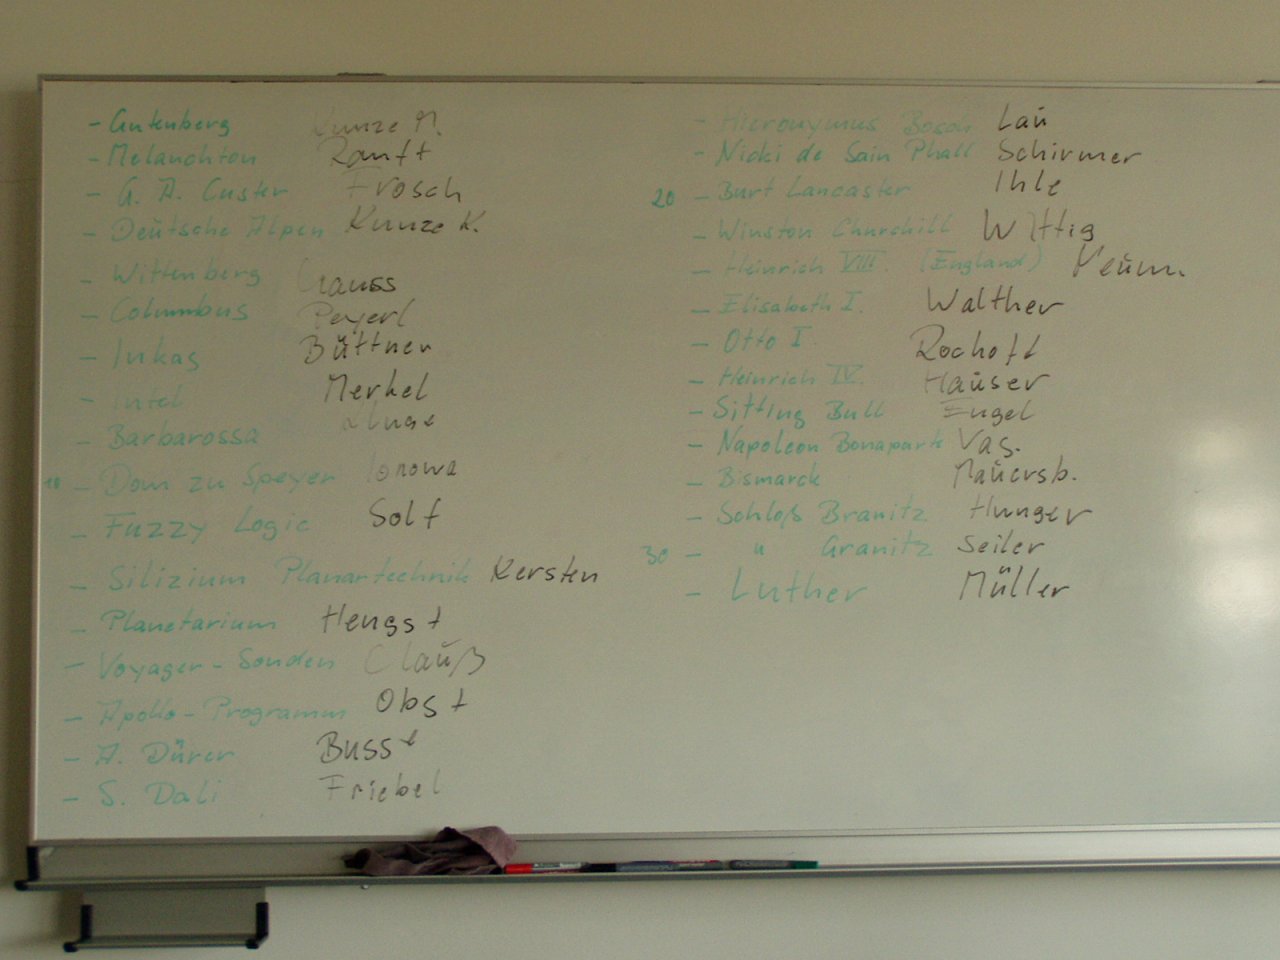 - Gutenberg Kunze M.
- Melanchton Ranft
- G. A. Custer Frosch
- Deutsche Alpen Kunze K.
- Wittenberg Krauss
- Columbus Peyerl
- Inkas Büttner
- Intel Merkel
- Barbarossa Kluge
10 - Dom zu Speyer
- Fuzzy Logic Solf
- Silizium Planartechnik Kersten
- Planetarium Hengst
- Voyager-Sonden Clauß
- Apollo-Programm Obst
- A. Dürer Busse
- S. Dali Friebel
- Hieronymus Bosch Lau
- Nicki de Sain Phall Schirmer
20 - Burt Lancaster Ihle
- Winston Churchill Wittig
- Heinrich VIII. (England) Neum.
- Elisabeth I. Walther
- Otto I. Rocholl
- Heinrich IV. Hauser
- Sitting Bull Engel
- Napoleon Bonaparte Vag.
- Bismarck Mauersb.
- Schloß Branitz Hunger
30 - " Granitz Seiler
- Luther Müller